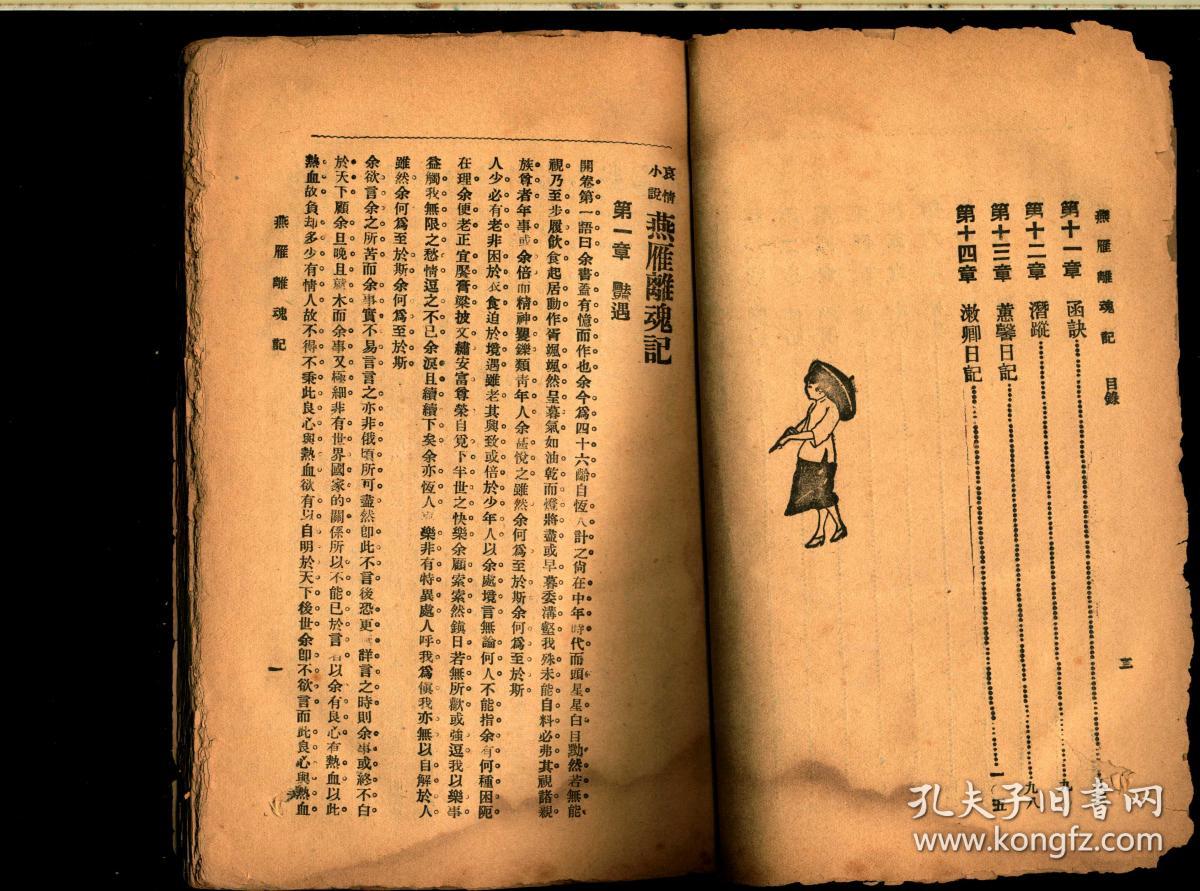 燕雁離魂記 目錄
第十一章 函訣 九
第十二章 潛蹤 九八
第十三章 薰馨日記 一 五
第十四章 漱卿日記
三
哀情小說 燕雁離魂記
第一章 豔遇
開卷第一語曰余書蓋有憶而作也余今爲四十六齡自恆人計之尙在中年時代而頭星星白目黝然若無能
視乃至步履飲食起居動作胥颯颯然呈暮氣如油乾而燈將盡或早暮委溝壑我殊未能自料必弗其視諸親
族尊者年事或余倍而精神矍鑠類靑年人余甚悅之雖然余何爲至於斯余何爲至於斯
人少必有老非困於衣食迫於境遇雖老其興致或倍於少年人以余處境言無論何人不能指余有何種困阨
在理余便老正宜饜膏粱披文繡安富尊榮自覓下半世之快樂余顧索索然鎭日若無所歡或強逗我以樂事
益觸我無限之愁情逗之不已余淚且續續下矣余亦恆人 樂非有特異處人呼我爲傎我亦無以自解於人
雖然余何爲至於斯余何爲至於斯
余欲言余之所苦而余事實不易言言之亦非俄頃所可盡然卽此不言後恐更 詳言之時則余事或終不白
於天下顧余旦晚且就木而余事又極細非有世界國家的關係所以不能已於言者以余有良心有熱血以此
熱血故負却多少有情人故不得不秉此良心與熱血欲有以自明於天下後世余卽不欲言而此良心與熱血
燕雁離魂記
一
孔夫子旧书网
www.kongfz.com